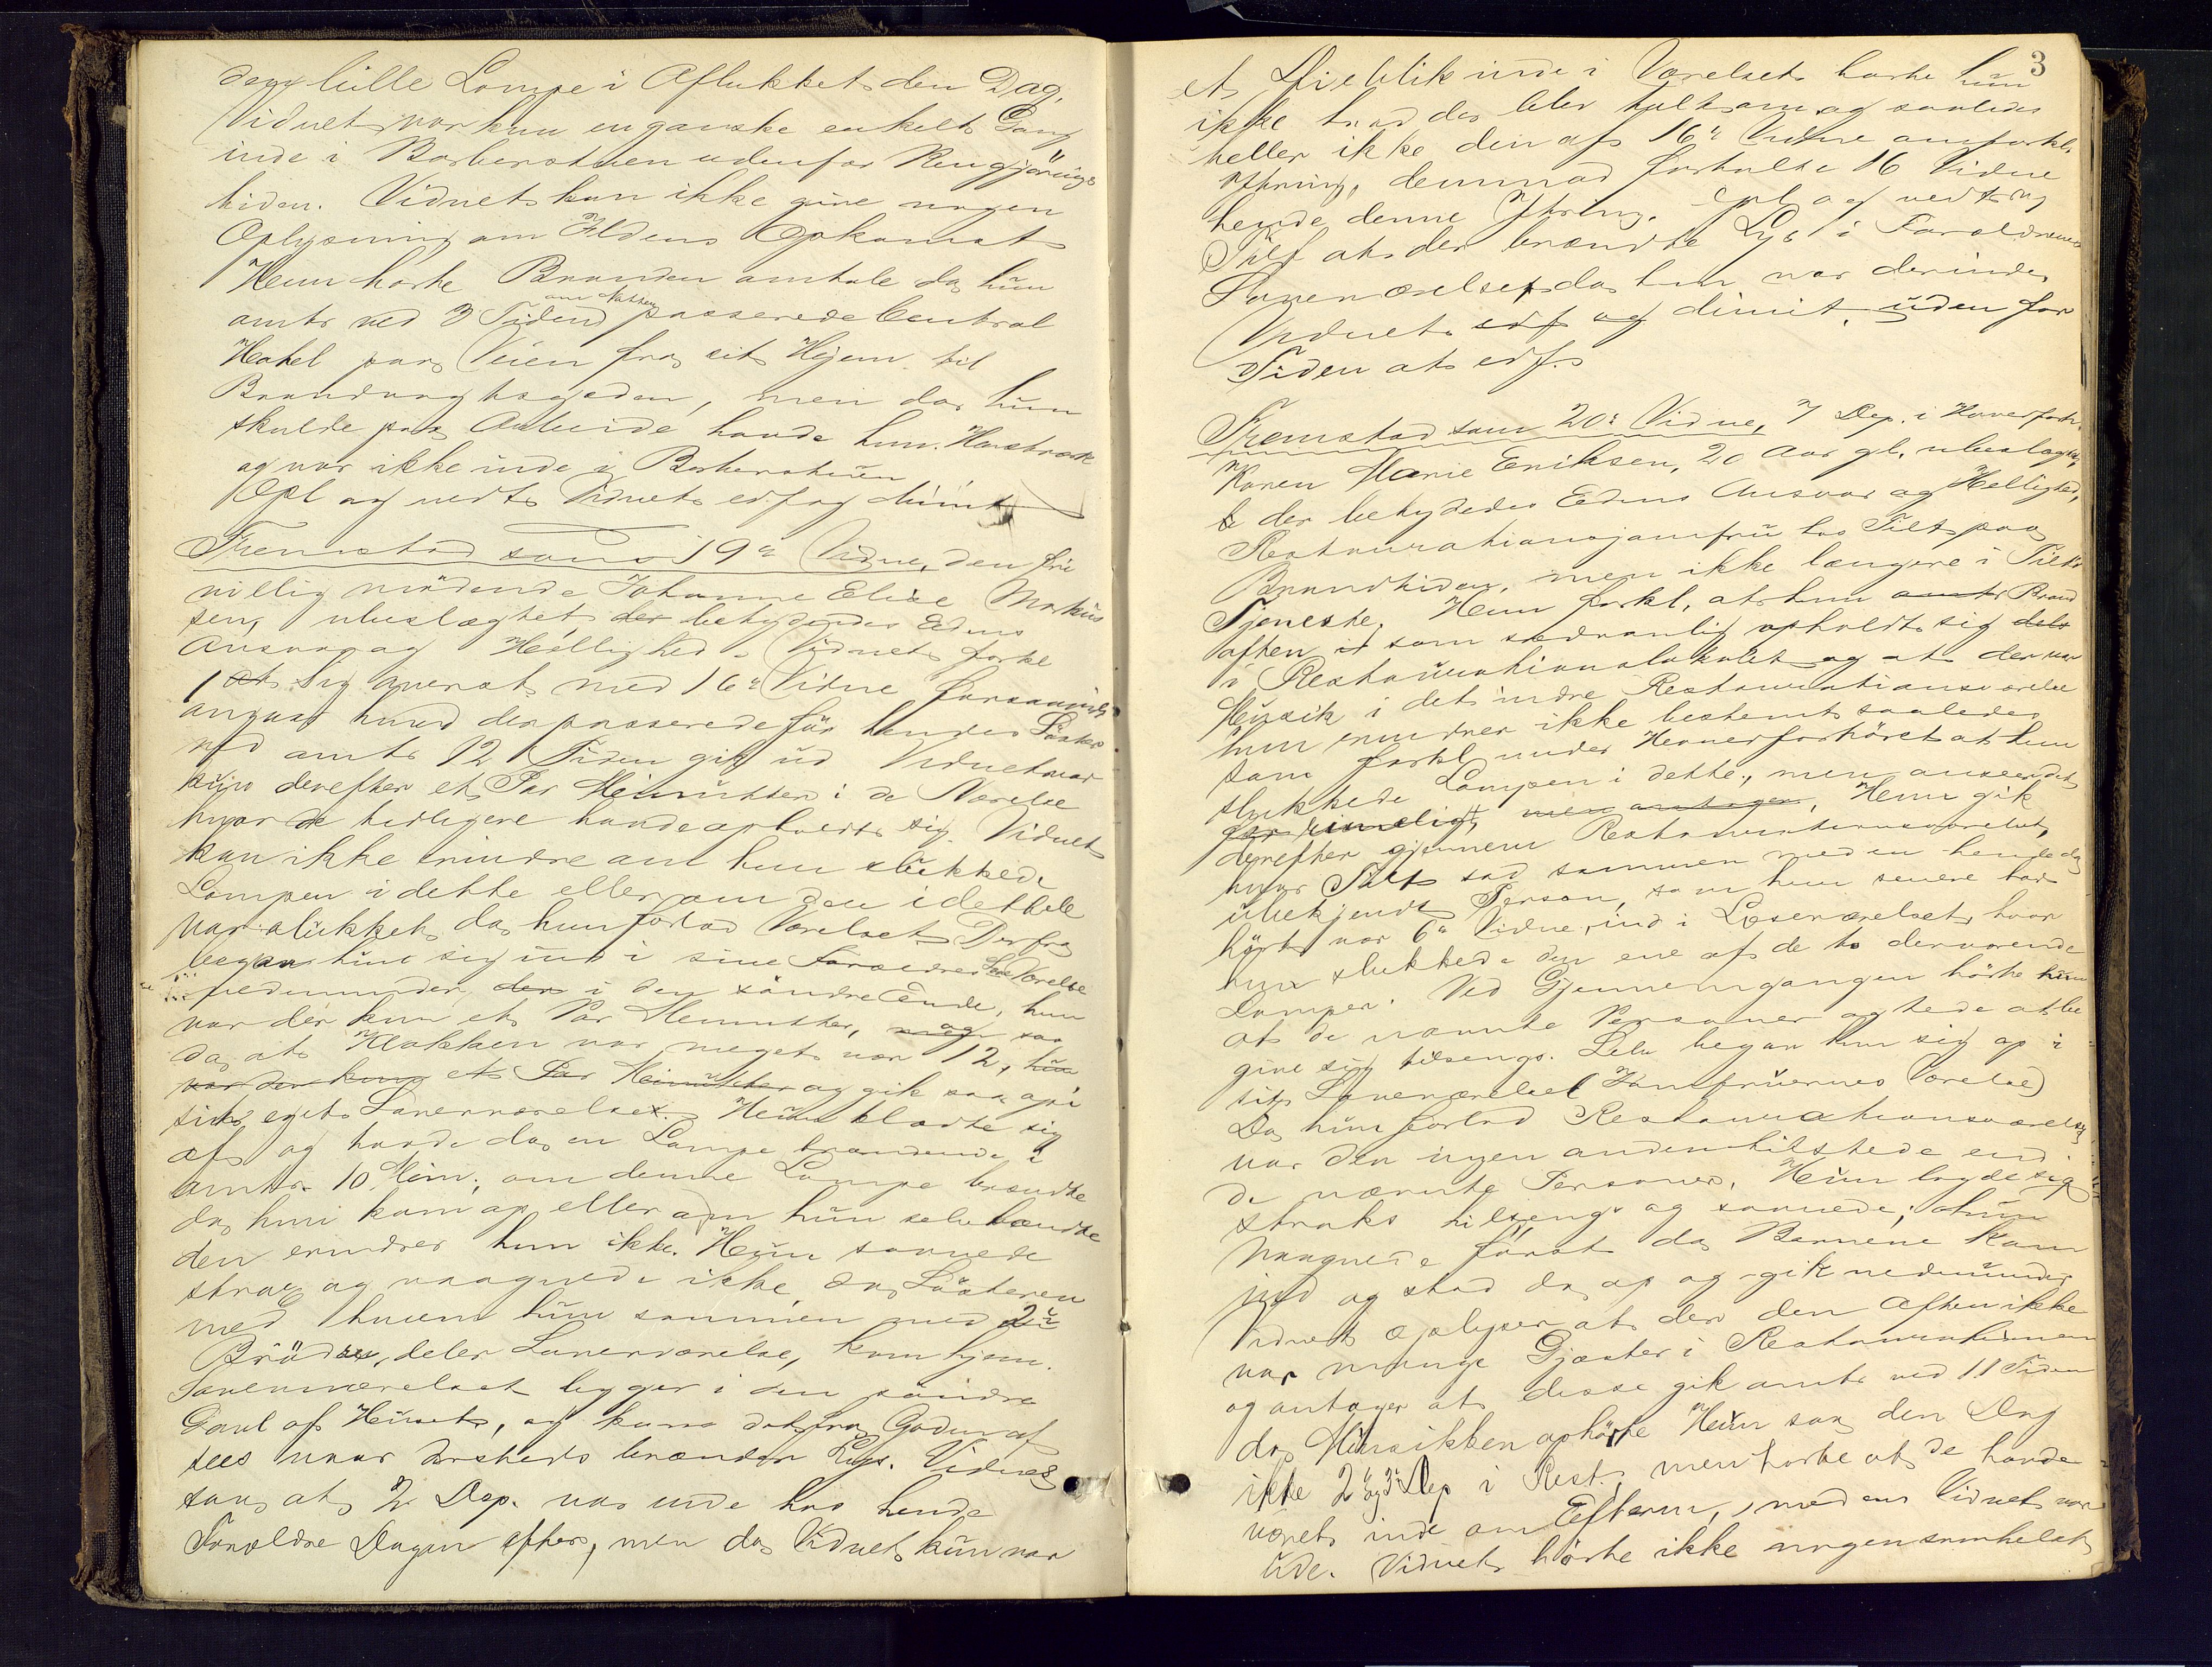 den lille Lampe i Aflukket den Dag.
Vidnet var kun en ganske enkelt Gang
inde i Barberstuen udenfor Rengjörings
tiden. Vidnet kan ikke give nogen
Oplysning om Ildens Opkomst
Hun hørte Branden omtale da hun
omtr ved 3 Tiden om Natten passerede Central
Hotel paa Veien fra sit Hjem til
Brandvagtsgaden, men da hun
skulde paa Arbeide havde hun Hastværk
og var ikke inde i Barberstuen
Opl og vedt. Vidnet edf og dimit
Fremstod som 19de Vidne, den fri
villig mödende Johanne Elise Markus
sen, ubeslægtet der betydedes Edens
Ansvar og Hellighed. Vidnet forkl
at sig overenst med 16de Vidne forsaavidt
angaar hvad der passerede för hendes Söster
ved omtr 12 Tiden gik ud Vidnet var
kun derefter et Par Minutter i de Værelse
hvor de tidligere havde opholdt sig. Vidnet
kan ikke erindre om hun slukkede
Lampen i dette eller om den i det hele
var slukket da hun forlod Værelset Derfra
begav hun sig ind i sine Forædres Værelse
nedenunder der i den söndre Ende, hun
var der kun et Par Minutter, og saa
da at Klokken var meget nær 12, hun
var der kun et Par Minutter og gik saa op i
sit eget Soveværelse. Hun klædte sig
af og havde da en Lampe brændende i
omtr. 10 Min; om denne Lampe brændte
da hun kom op eller om hun selv tændte
den erindrer hun ikke. Hun sovnede
strax og vaagnede ikke da Sösteren
med hvem hun sammen med
Brödre, deler Soveværelse, kom hjem.
Soveværelset ligger i den söndre
Gavl af Huset, og kan det fra Gaden af
sees naar dersteds brænder Lys. Vidnet
saa at 2 Dep. var inde hos hendes
Forældre Dagen efter, men da Vidnet kun var
3
et Øieblik inde i Værelset hørte hun
ikke hvad der blev talt om og saaledes
heller ikke den af 16de Vidne omforkl.
Ytring, derimod fortalte 16 Vidne
hende denne Ytring. Opl og vedtog
Tilf at der brændte Lys i Forældrenes
Soveværelse da hun var derinde
Vidnet edf og dimit uden for
Tiden at edf.
Fremstod som 20de Vidne, 7 Dep. i Hoverforh.
Karen Marie Eriksen, 20 Aar gl. ubeslægtet,
der betydedes Edens Ansvar og Hellighed,
Restaurationsjomfru hos Tilt paa
Brandtiden, men ikke længere i Tilts
Tjeneste. Hun forkl, at hun omtr Brand
aften som sædvanlig opholdt sig dels
i Restaurationslokalet og at der var
Musik i det indre Restaurationsværelse
hun erindrer ikke bestemt saaledes
som forkl under Hoverforhöret at hun
slukkede Lampen i dette, men anseer det
for rimeligt, men antager, Hun gik
derefter gjennem Restaurationsværelset,
hvor Tilt sad sammen med en hende da
ubekjendt Person, som hun senere har
hört var 6te Vidne, ind i Læseværelset hvor
hun slukkede den ene af de to derværende
Lamper. Ved Gjennemgangen hörte hun
at de nævnte Personer agtede at be
give sig tilsengs. Selv begav hun sig op i
sit Soveværelse (Jomfruernes Værelse)
Da hun forlod Restaurationsværelset
var der ingen anden tilstede end
de nævnte Personer. Hun lagde sig
straks tilsengs og sovnede; hun
vaagnede först da Barnene kom
ind og stod da op og gik nedunder
Vidnet oplyser at der den Aften ikke
var mange Gjæster i Restaurationen
og antager at disse gik omtr ved 11 Tiden
da Musikken ophörte Hun saa den Dag
ikke 2 og 3 Dep i Rest, men hörte at de havde
været inde om Efterm, medens Vidnet var
ude. Vidnet hörte ikke nogensomhelst